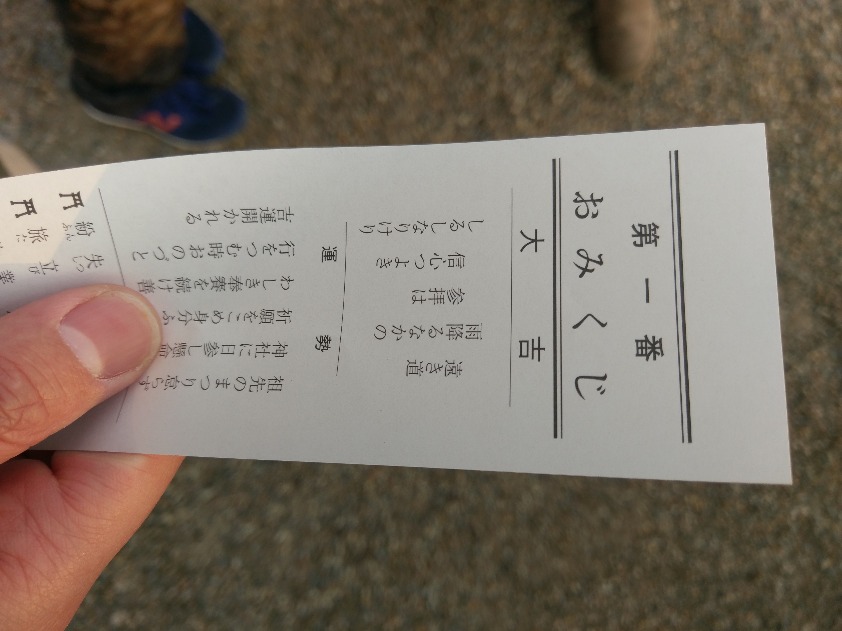 第一番
おみくじ
大吉
遠き道
雨降るなかの
参拝は
信心つよき
しるしなりけり
運勢
祖先のまつり怠らず
神社に日参し懸
祈願をこめ身分ふ
わしき奉養を続け善
行をつむ時おのづと
吉運開かれる
紛失
旅立